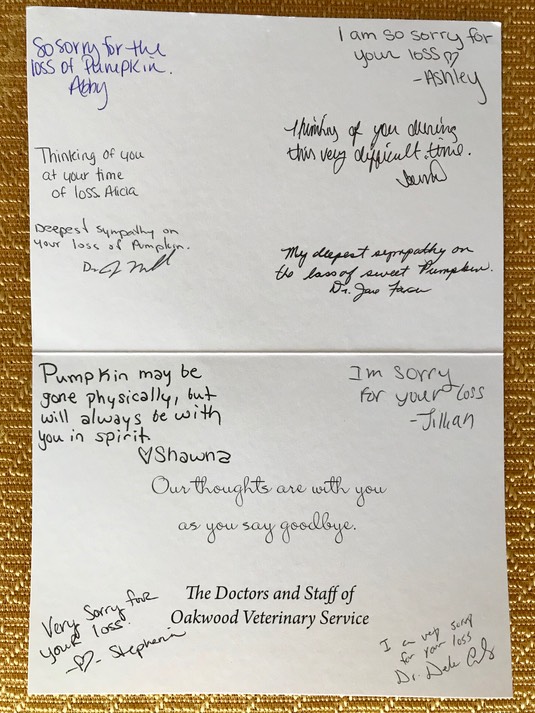 So sorry for the
loss of Pumpkin.
Abby
I am so sorry for
your loss ♡
-Ashley
Thinking of you
at your time
of loss Alicia
Thinking of you during
this very difficult time.
Deepest sympathy on
your loss of Pumpkin.
Dr.
My deepest sympathy on
the loss of sweet Pumpkin.
Dr. Jane
Pumpkin may be
gone physically, but
will always be with
you in spirit
♡Shawna
I'm sorry
for your loss
-Jillian
Our thoughts are with you
as you say goodbye.
The Doctors and Staff of
Oakwood Veterinary Service
Very Sorry for
your loss.
-♡- Stephenie
I am very sorry
for your loss
Dr.